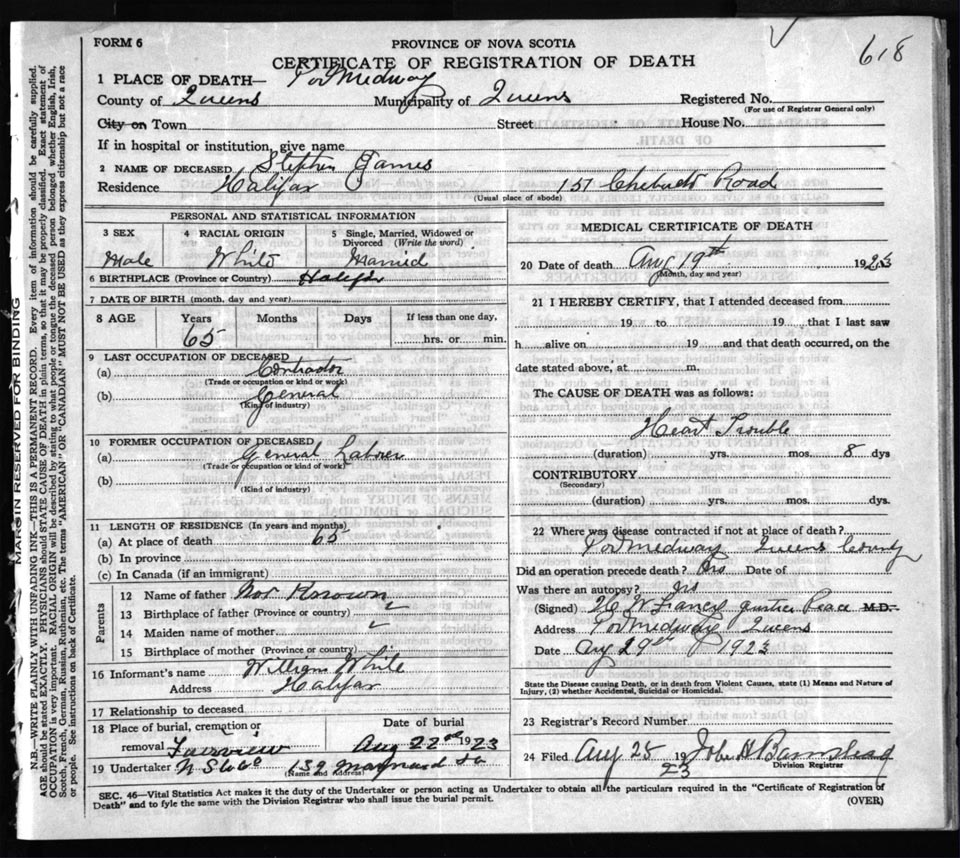 618
FORM 6
PROVINCE OF NOVA SCOTIA
CERTIFICATE OF REGISTRATION OF DEATH
1 PLACE OF DEATH— Port Medway
County of Queens Municipality of Queens Registered No.
(For use of Registrar General only)
City or Town Street House No.
If in hospital or institution, give name
2 NAME OF DECEASED Stephen James
Residence Halifax 157 Chebucto Road
(Usual place of abode)
PERSONAL AND STATISTICAL INFORMATION
3 SEX 4 RACIAL ORIGIN 5 Single, Married, Widowed or Divorced (Write the word)
Male White Married
6 BIRTHPLACE (Province or Country) Halifax
7 DATE OF BIRTH (month, day and year)
8 AGE Years Months Days If less than one day,
65 hrs. or min.
9 LAST OCCUPATION OF DECEASED
(a) Contractor
(Trade or occupation or kind or work)
(b) General
(Kind of industry)
10 FORMER OCCUPATION OF DECEASED
(a) General Laborer
(Trade or occupation or kind of work)
(b)
(Kind of industry)
11 LENGTH OF RESIDENCE (In years and months)
(a) At place of death 65
(b) In province
(c) In Canada (if an immigrant)
Parents
12 Name of father Not Known
13 Birthplace of father (Province or country)
14 Maiden name of mother
15 Birthplace of mother (Province or country)
16 Informant's name William White
Address Halifax
17 Relationship to deceased
18 Place of burial, cremation or removal Fairview
Date of burial Aug 22nd 1923
19 Undertaker 139 Maynard St
(Name and Address)
MEDICAL CERTIFICATE OF DEATH
20 Date of death Aug 19th 1923
(Month, day and year)
21 I HEREBY CERTIFY, that I attended deceased from
19 to 19 that I last saw
h alive on 19 and that death occurred, on the
date stated above, at m.
The CAUSE OF DEATH was as follows:
Heart Trouble
(duration) yrs. mos. 8 dys
CONTRIBUTORY
(Secondary)
(duration) yrs. mos. dys.
22 Where was disease contracted if not at place of death?
Port Medway Queens County
Did an operation precede death? Date of
Was there an autopsy?
(Signed) Justice Peace M.D.
Address Port Medway Queens
Date Aug 29th 1923
State the Disease causing Death, or in death from Violent Causes, state (1) Means and Nature of
Injury, (2) whether Accidental, Suicidal or Homicidal.
23 Registrar's Record Number
24 Filed Aug 25 19 23 John H Barnstead
Division Registrar
SEC. 46—Vital Statistics Act makes it the duty of the Undertaker or person acting as Undertaker to obtain all the particulars required in the "Certificate of Registration of
Death" and to fyle the same with the Division Registrar who shall issue the burial permit. (OVER)
MARGIN RESERVED FOR BINDING
N.B.—WRITE PLAINLY WITH UNFADING INK—THIS IS A PERMANENT RECORD. Every item of information should be carefully supplied.
AGE should be stated EXACTLY. PHYSICIANS should STATE CAUSE OF DEATH in plain terms, so that it may be properly classified. Exact statement of
OCCUPATION is very important. RACIAL ORIGIN will be described by stating to what people or tongue the deceased person belonged whether English, Irish,
Scotch, French, German, Russian, Ruthenian, etc. The terms "AMERICAN" OR "CANADIAN" MUST NOT BE USED as they express citizenship but not a race
or people. See instructions on back of Certificate.